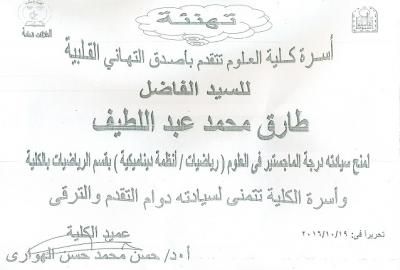 تهنئة
أسرة كلية العلوم تتقدم بأصدق التهاني القلبية
للسيد الفاضل
طارق محمد عبد اللطيف
لمنح سيادته درجة الماجستير فى العلوم ( رياضيات / أنظمة ديناميكية ) بقسم الرياضيات بالكلية
وأسرة الكلية تتمنى لسيادته دوام التقدم والترقى
تحريرا فى: ٢٠١٦/١٠/١٩
عميد الكلية
أ.د/ حسن محمد حسن الهوارى